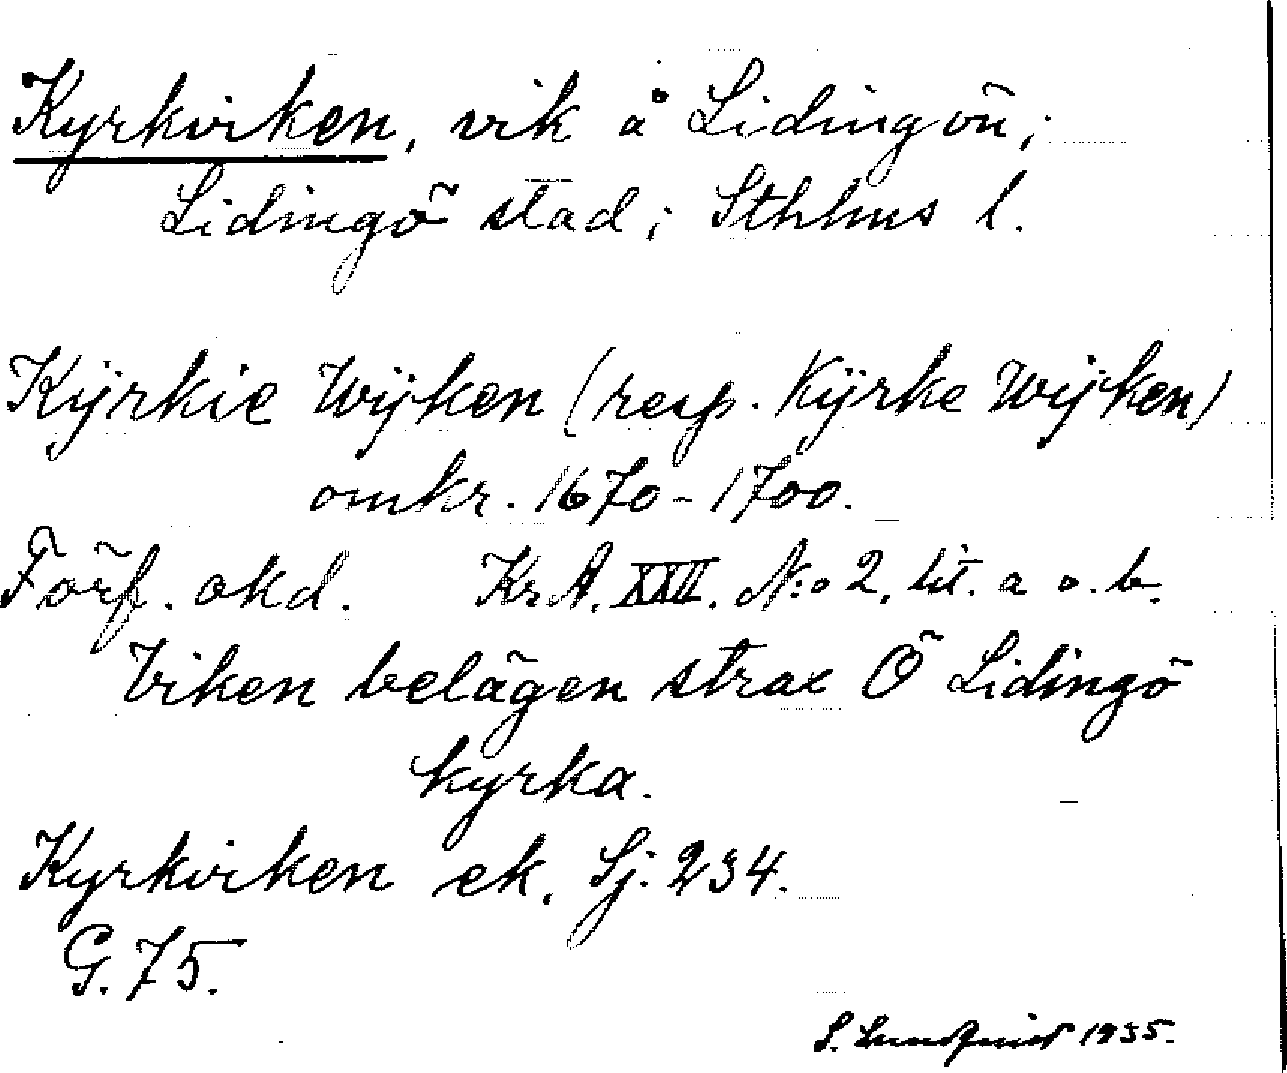 Kyrkviken, vik å Lidingön,
Lidingö stad, Sthlms l.
Kÿrkie Wijken (resp. Kÿrke Wijken)
omkr. 1670-1700.
Förf. okd. KrA. XXII. N:o 2, lit. a o. b.
Viken belägen strax Ö Lidingö
kyrka.
Kyrkviken ek. Sj. 234.
G. 75.
S. Lundquist 1935.